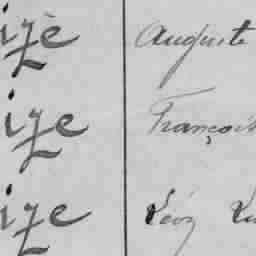 izè Auguste
ize François
ize Léon